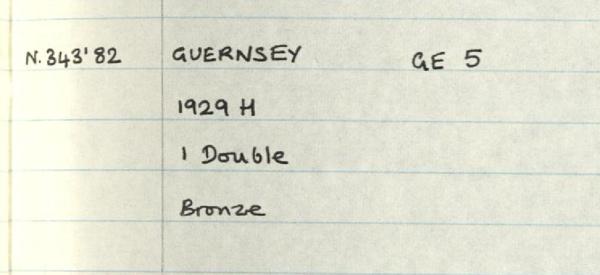 N.343'82 GUERNSEY GE 5
1929 H
1 Double
Bronze